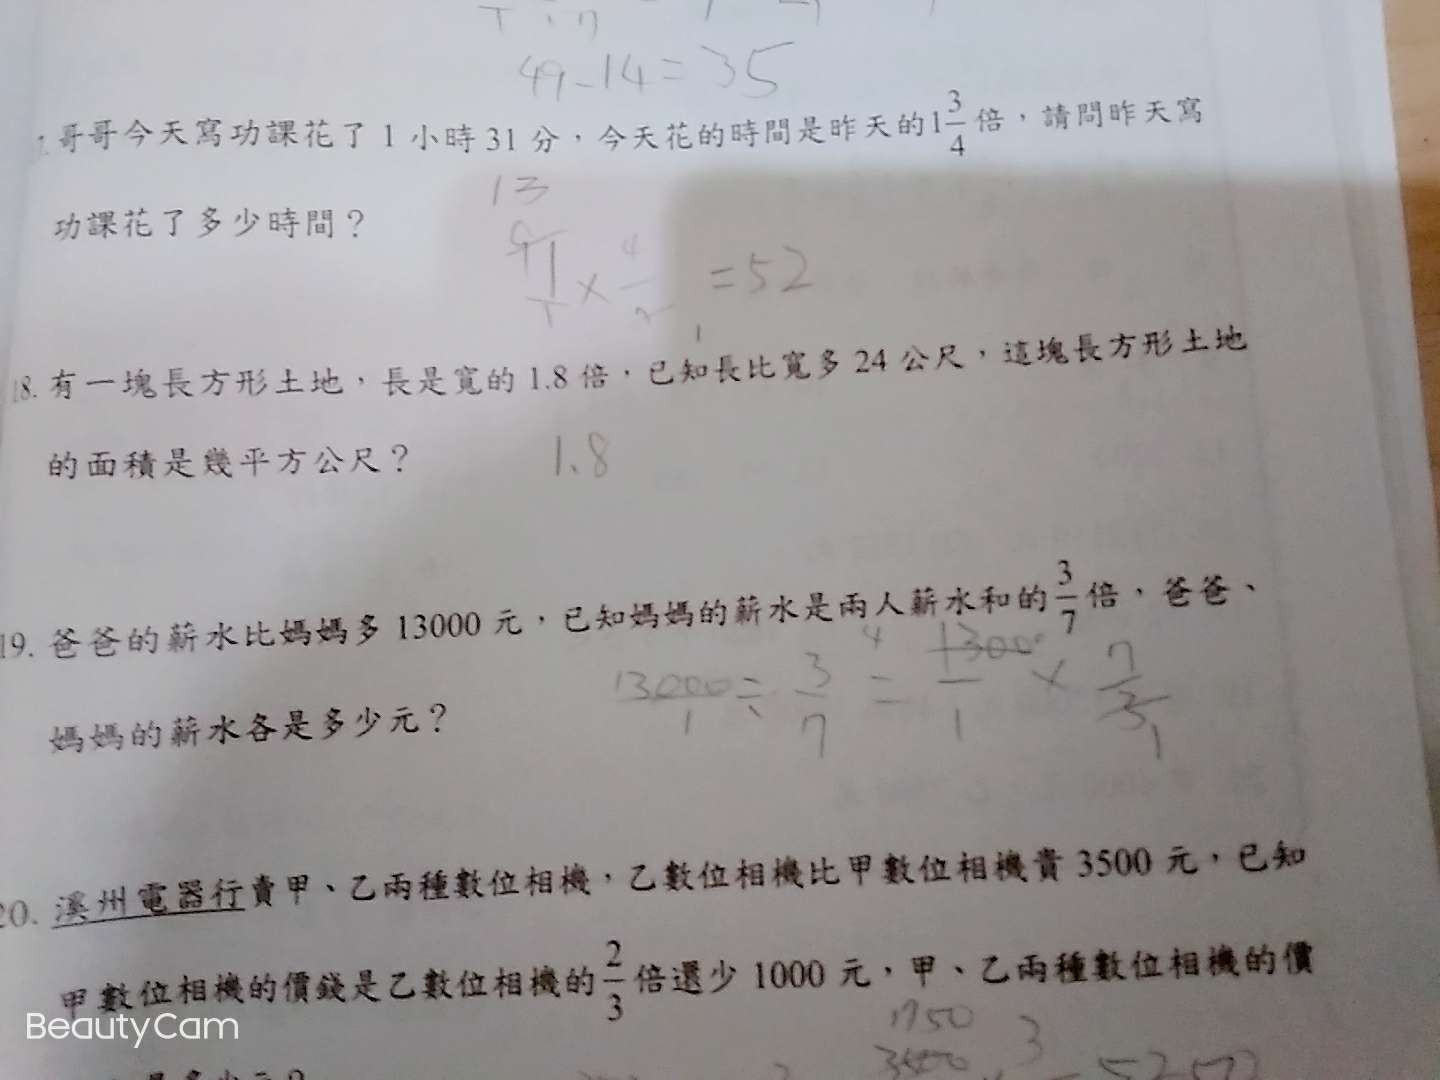 49-14=35
哥哥今天寫功課花了1小時31分，今天花的時間是昨天的1 3/4 倍，請問昨天寫
功課花了多少時間？
13
91/1 × 4/7 = 52
1
18. 有一塊長方形土地，長是寬的1.8倍，已知長比寬多24公尺，這塊長方形土地
的面積是幾平方公尺？ 1.8
19. 爸爸的薪水比媽媽多13000元，已知媽媽的薪水是兩人薪水和的 3/7 倍，爸爸、
13000/1 ÷ 3/7 = 13000/1 × 7/3
4
1
媽媽的薪水各是多少元？
20. 溪州電器行賣甲、乙兩種數位相機，乙數位相機比甲數位相機貴3500元，已知
甲數位相機的價錢是乙數位相機的 2/3 倍還少1000元，甲、乙兩種數位相機的價
1750
3500 3
是多少元？
BeautyCam